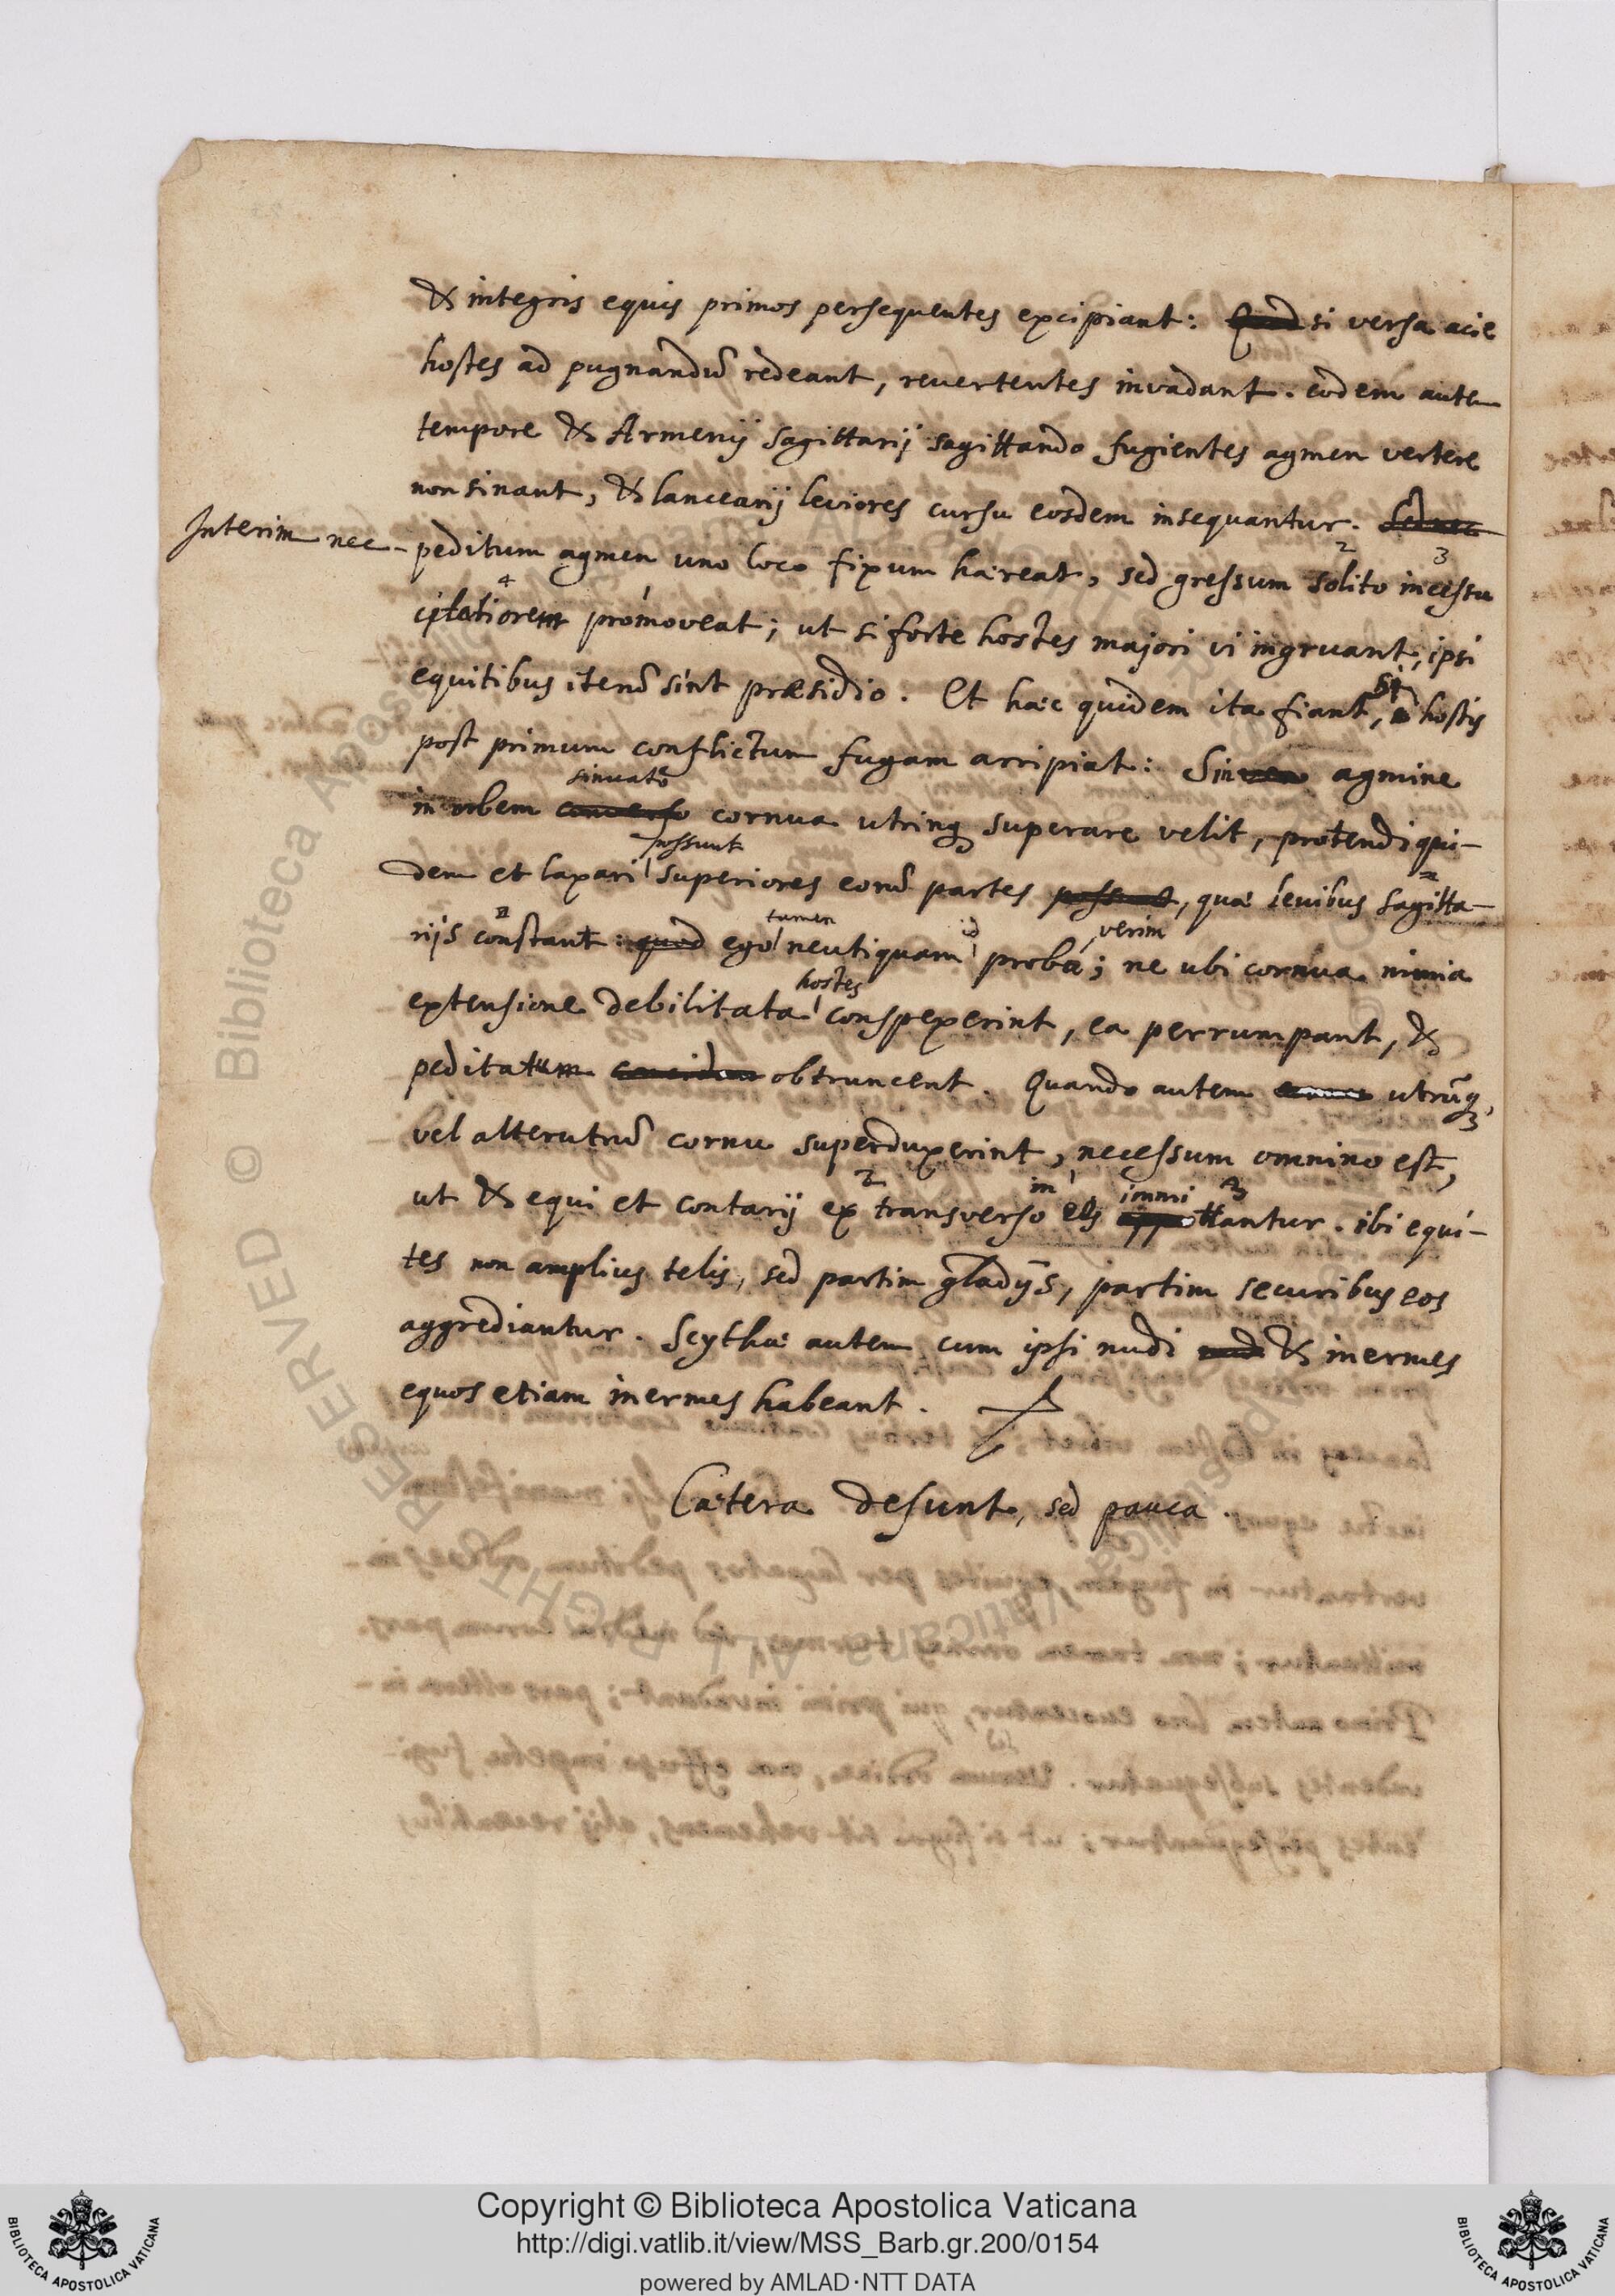 & integris equis primos persequentes excipiant: Quod si versa acie
hostes ad pugnandũ redeant, revertentes invadant. eodem autem
tempore & Armenij sagittarij sagittando fugientes agmen vertere
non sinant, & lancearij leviores cursu eosdem insequantur. Sed nec
Interim nec
peditum agmen uno loco fixum hæreat, sed gressum solito incessu
2 3
citatiorem promoveat; ut si forte hostes majori vi ingruant, ipsi
4 1
equitibus iterũ sint præsidio. Et hæc quidem ita fiant, si hostis
post primum conflictum fugam arripiat: Sin vero agmine
sinuato
in orbem converso cornua utrinq superare velit, protendi qui-
possunt
dem et laxari superiores eorũ partes possunt, quæ levibus sagitta-
tamen id verim
rijs constant: quod ego neutiquam proba; ne ubi cornua nimia
hostes
extensione debilitata conspexerint, ea perrumpant, &
peditatum obtruncent. Quando autem utrũq,
vel alterutrũ cornu superduxerint, necessum omnino est,
2 in immi
ut & equi et contarij ex transverso eos ttantur. ibi equi-
tes non amplius telis, sed partim gladijs, partim securibus eos
aggrediantur. Scythæ autem cum ipsi nudi & inermes
equos etiam inermes habeant.
Cætera desunt, sed pauca.
© Biblioteca Apostolica Vaticana ALL RIGHTS RESERVED
Copyright © Biblioteca Apostolica Vaticana
http://digi.vatlib.it/view/MSS_Barb.gr.200/0154
powered by AMLAD·NTT DATA
BIBLIOTECA APOSTOLICA VATICANA
BIBLIOTECA APOSTOLICA VATICANA